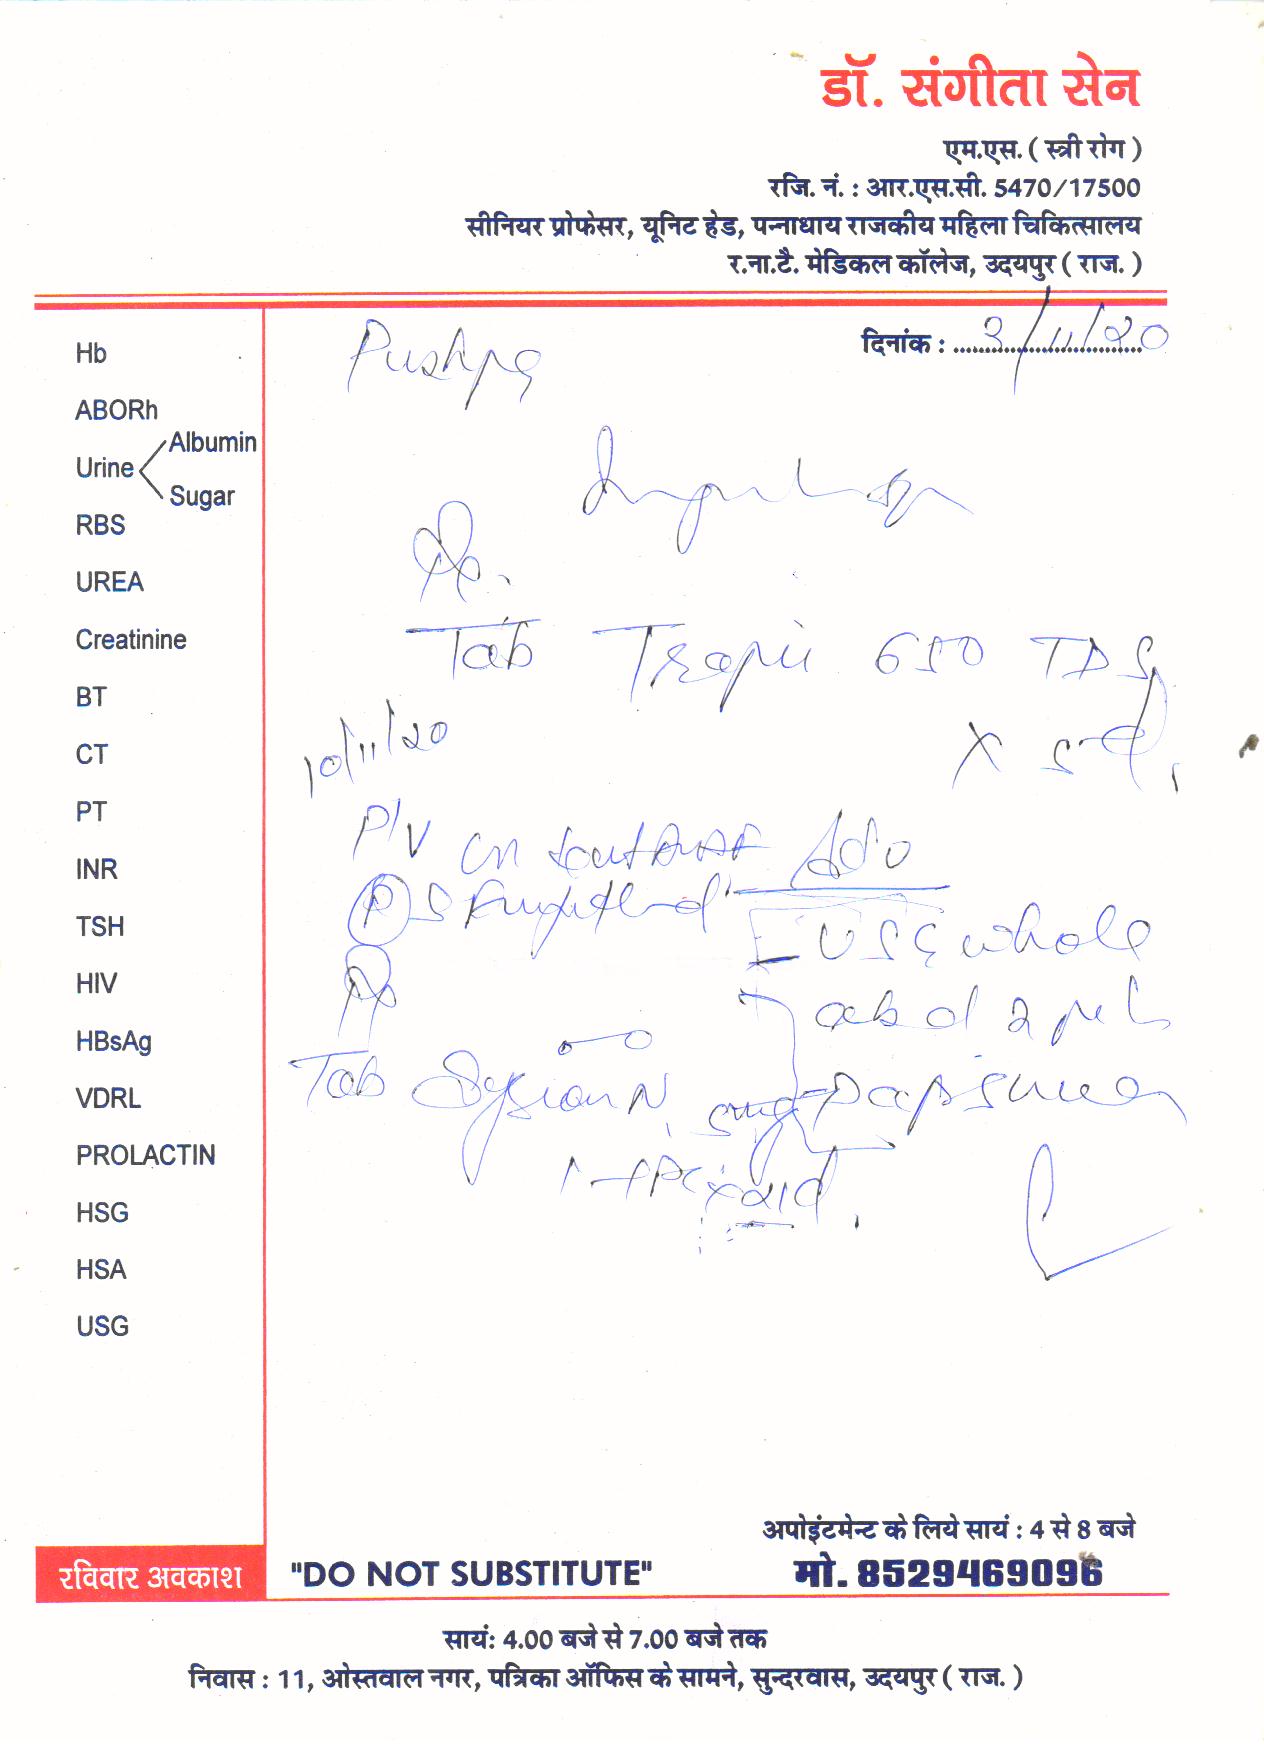 डॉ. संगीता सेन
एम.एस. ( स्त्री रोग )
रजि. नं. : आर.एस.सी. 5470/17500
सीनियर प्रोफेसर, यूनिट हेड, पन्नाधाय राजकीय महिला चिकित्सालय
र.ना.टै. मेडिकल कॉलेज, उदयपुर ( राज. )
दिनांक : 3/11/20
Pushpa
Hb
ABORh
Urine
Albumin
Sugar
RBS
UREA
Creatinine
BT
CT
PT
INR
TSH
HIV
HBsAg
VDRL
PROLACTIN
HSG
HSA
USG
Rx.
Tab 650 TDS
X 5 d
10/11/20
P/V
Adv
USG whole
abd & pel
Tab N 5mg
Pap smear
रविवार अवकाश
"DO NOT SUBSTITUTE"
अपोइंटमेन्ट के लिये सायं : 4 से 8 बजे
मो. 8529469096
सायं: 4.00 बजे से 7.00 बजे तक
निवास : 11, ओस्तवाल नगर, पत्रिका ऑफिस के सामने, सुन्दरवास, उदयपुर ( राज. )